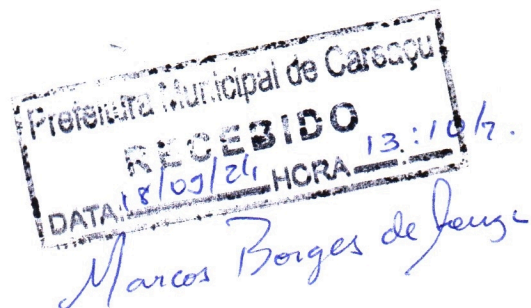 Prefeitura Municipal de Careaçu
RECEBIDO
DATA 18/09/21 HORA 13:10h.
Marcos Borges de Souza